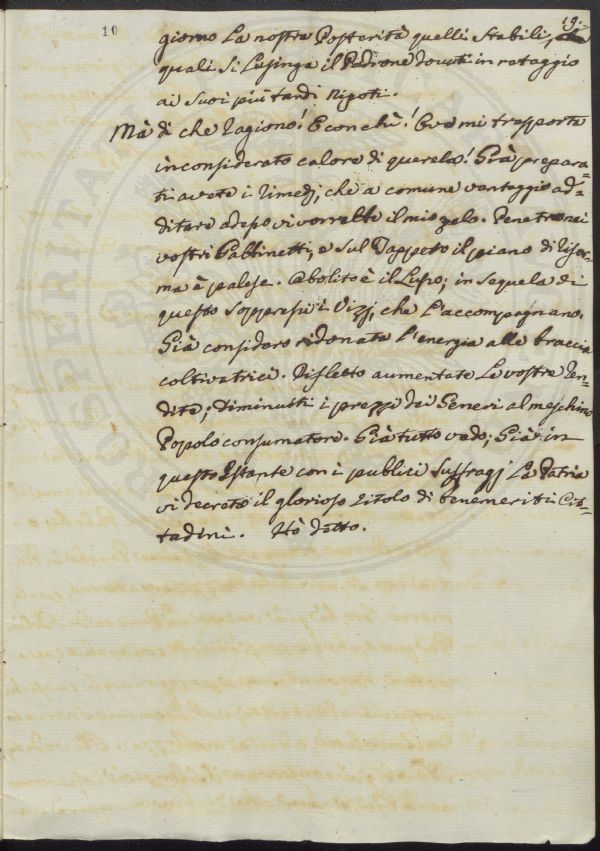 10
19.
giorno La nostra Posterità quelli Stabili,
quali si Lusinga il Padrone dovuti in retaggio
ai suoi più tardi Nipoti.
Mà di che ragiono! E con chi! Ove mi trasporta
inconsiderato calore di querela! Già prepara=
ti avete i rimedj, che a comune vantaggio ad=
ditare adesso vi vorrebbe il mio zelo. Penetro nei
vostri Gabbinetti, e sul Tappeto il piano di rifor=
ma è palese. Abolito è il Lusso; in sequela di
questo soppressi i Vizj, che l'accompagnano.
Già considero ridonata l'energia alle braccia
coltivatrici. Rifletto aumentate Le vostre Ren=
dite; diminuiti i prezzi dei Generi al meschino
Popolo consumatore. Già tutto vedo; Già in
questo Istante con i publici suffragj La Patria
vi decreta il glorioso titolo di benemeriti Cit=
tadini. Hò detto.